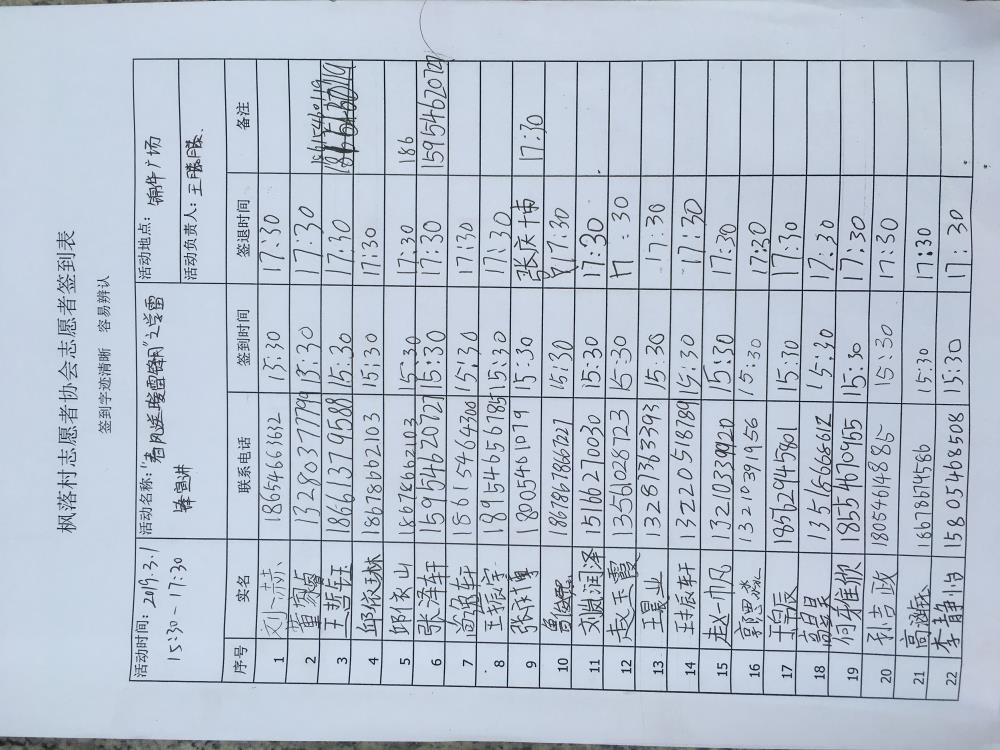 枫落村志愿者协会志愿者签到表
签到字迹清晰 容易辨认
活动时间：2019.3.1 15:30-17:30
活动名称："春风送暖雷锋月"之学雷锋宣讲
活动地点：锦华广场
活动负责人：王
序号 实名 联系电话 签到时间 签退时间 备注
1 刘一 18654663632 15:30 17:30
2 董家睿 13280377799 15:30 17:30
3 王哲钰 18661379588 15:30 17:30 18615460119
4 邱依琳 18678662103 15:30 17:30
5 邱依山 18678662103 15:30 17:30 186
6 张泽轩 15954620727 15:30 17:30 15954620727
7 轩 18615464300 15:30 17:30
8 王振宇 18954656785 15:30 17:30
9 张庆博 18054601079 15:30 张庆博 17:30
10 18678678667227 15:30 17:30
11 刘骏润泽 15166270030 15:30 17:30
12 赵玉霞 13561028723 15:30 17:30
13 王晨业 13287363393 15:30 17:30
14 王辰轩 13220518789 15:30 17:30
15 赵一帆 13210339920 15:30 17:30
16 郭思淼 13210391956 15:30 17:30
17 辰 18562945801 15:30 17:30
18 高昊 13516668661 15:30 17:30
19 何雅欣 18554670955 15:30 17:30
20 孙吉政 18054614885 15:30 17:30
21 高 18678674586 15:30 17:30
22 李静怡 15805468508 15:30 17:30